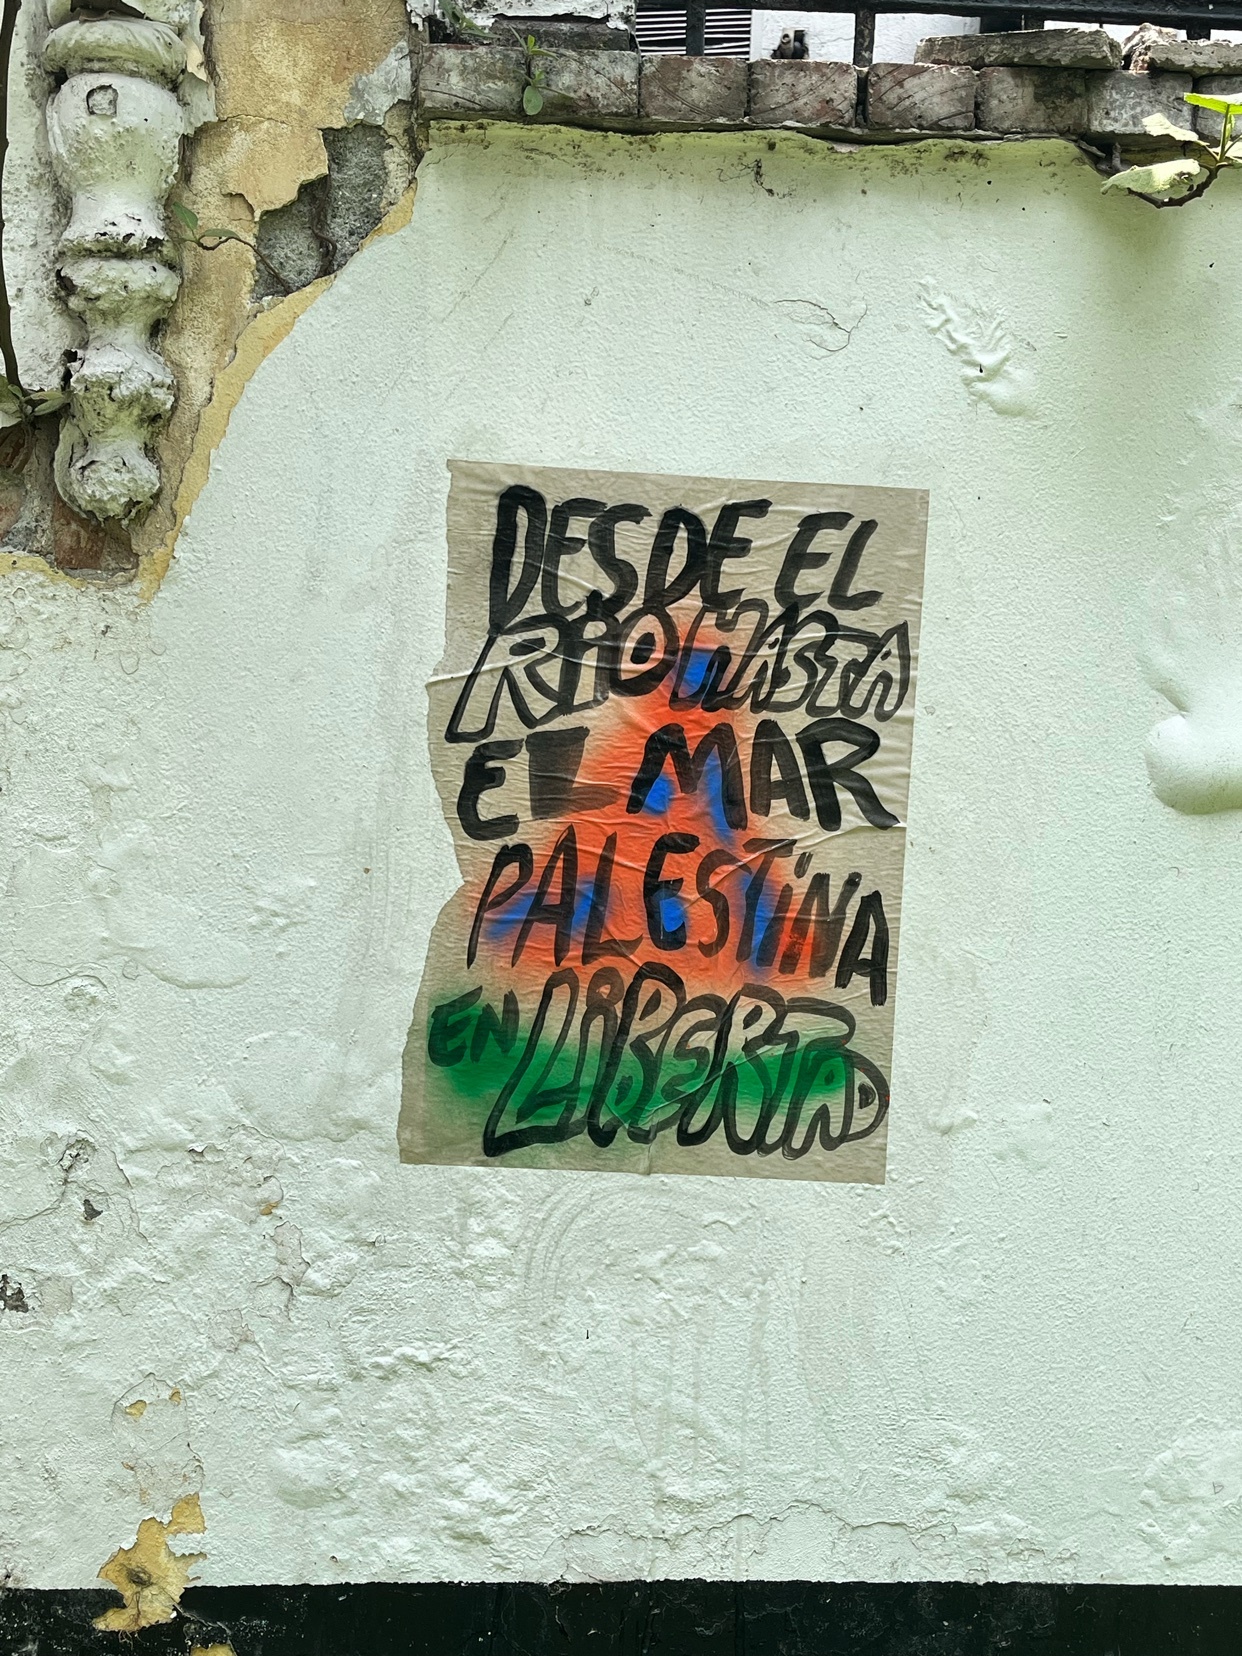 DESDE EL
RÍO HASTA
EL MAR
PALESTiNA
EN LIBERTAD